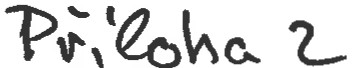 Příloha 2